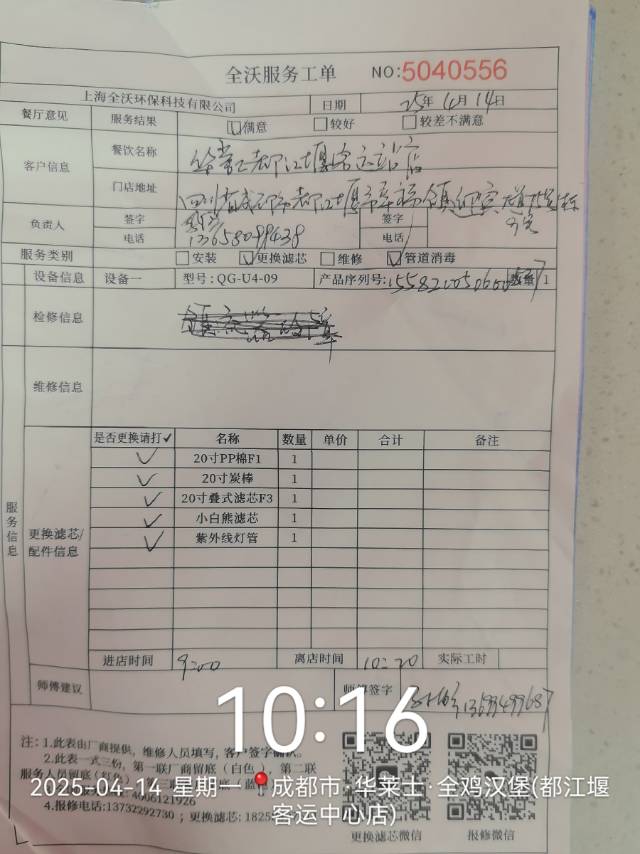 全沃服务工单 NO:5040556
上海全沃环保科技有限公司 日期 25年4月14日
餐厅意见 服务结果 满意 较好 较差不满意
客户信息 餐饮名称 都江堰客运站店
门店地址 四川省成都市都江堰市幸福镇迎宾
负责人 签字 签字
电话 13658099438 电话
服务类别 安装 更换滤芯 维修 管道消毒
设备信息 设备一 型号:QG-U4-09 产品序列号: 数量 1
检修信息
维修信息
服务信息
更换滤芯/配件信息
是否更换请打✓ 名称 数量 单价 合计 备注
✓ 20寸PP棉F1 1
✓ 20寸炭棒 1
✓ 20寸叠式滤芯F3 1
✓ 小白熊滤芯 1
✓ 紫外线灯管 1
进店时间 9:00 离店时间 10:20 实际工时
师傅建议 师傅签字
10:16
注: 1.此表由厂商提供，维修人员填写，客户签字确认。
2.此表一式三份，第一联厂商留底（白色），第二联
服务人员留底
2025-04-14 星期一 成都市·华莱士·全鸡汉堡(都江堰
客运中心店)
4006121926
4.报修电话:13732292730 ; 更换滤芯: 1825
更换滤芯微信 报修微信